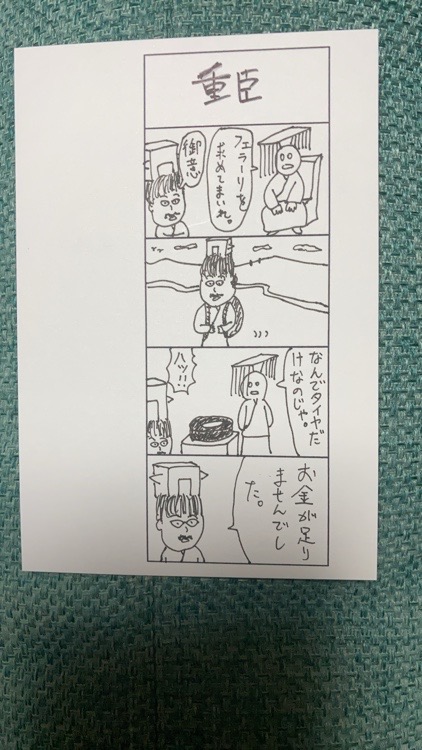 重臣
フェラーリを
求めてまいれ。
御意
なんでタイヤだ
けなのじゃ。
ハッ!!
お金が足り
ませんでし
た。